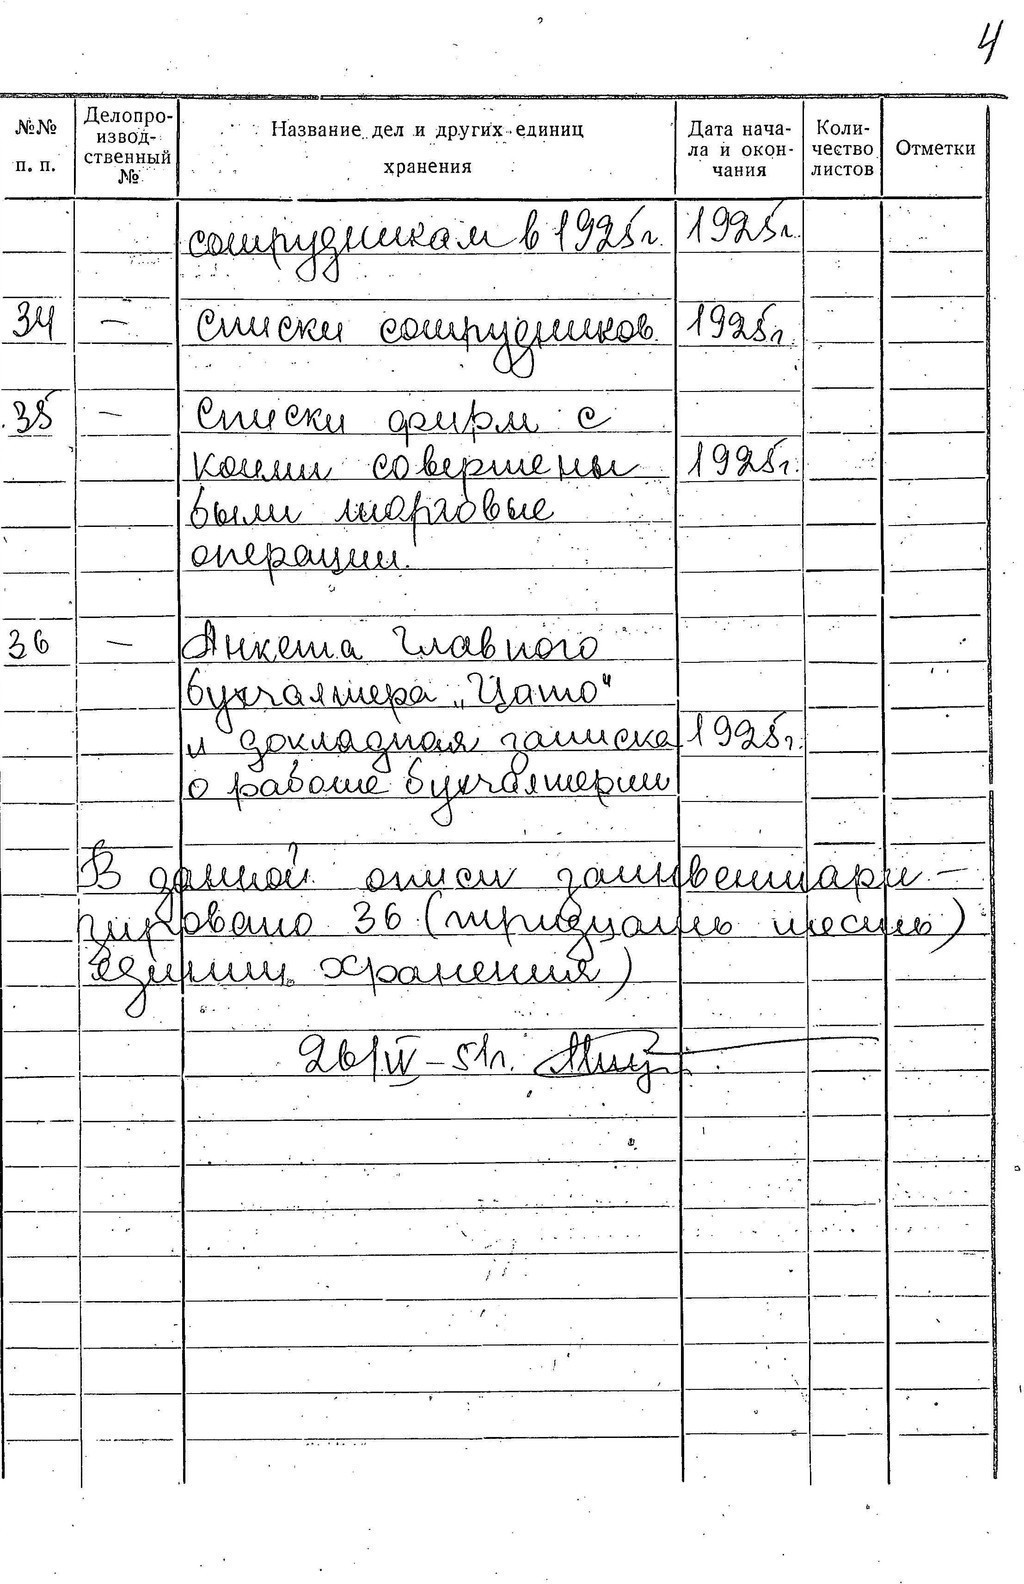 4
№№ п. п. Делопро-извод-ственный № Название дел и других единиц хранения Дата нача-ла и окон-чания Коли-чество листов Отметки
сотрудникам в 1925г. 1925г.
34 — Списки сотрудников. 1925г.
35 — Списки фирм с
коими совершены 1925г.
были торговые
операции.
36 — Анкета Главного
бухгалтера „Цато"
и докладная записка 1925г.
о работе бухгалтерии
В данной описи заинвентари-
зировано 36 (тридцать шесть)
единиц хранения)
26/IV-51г.